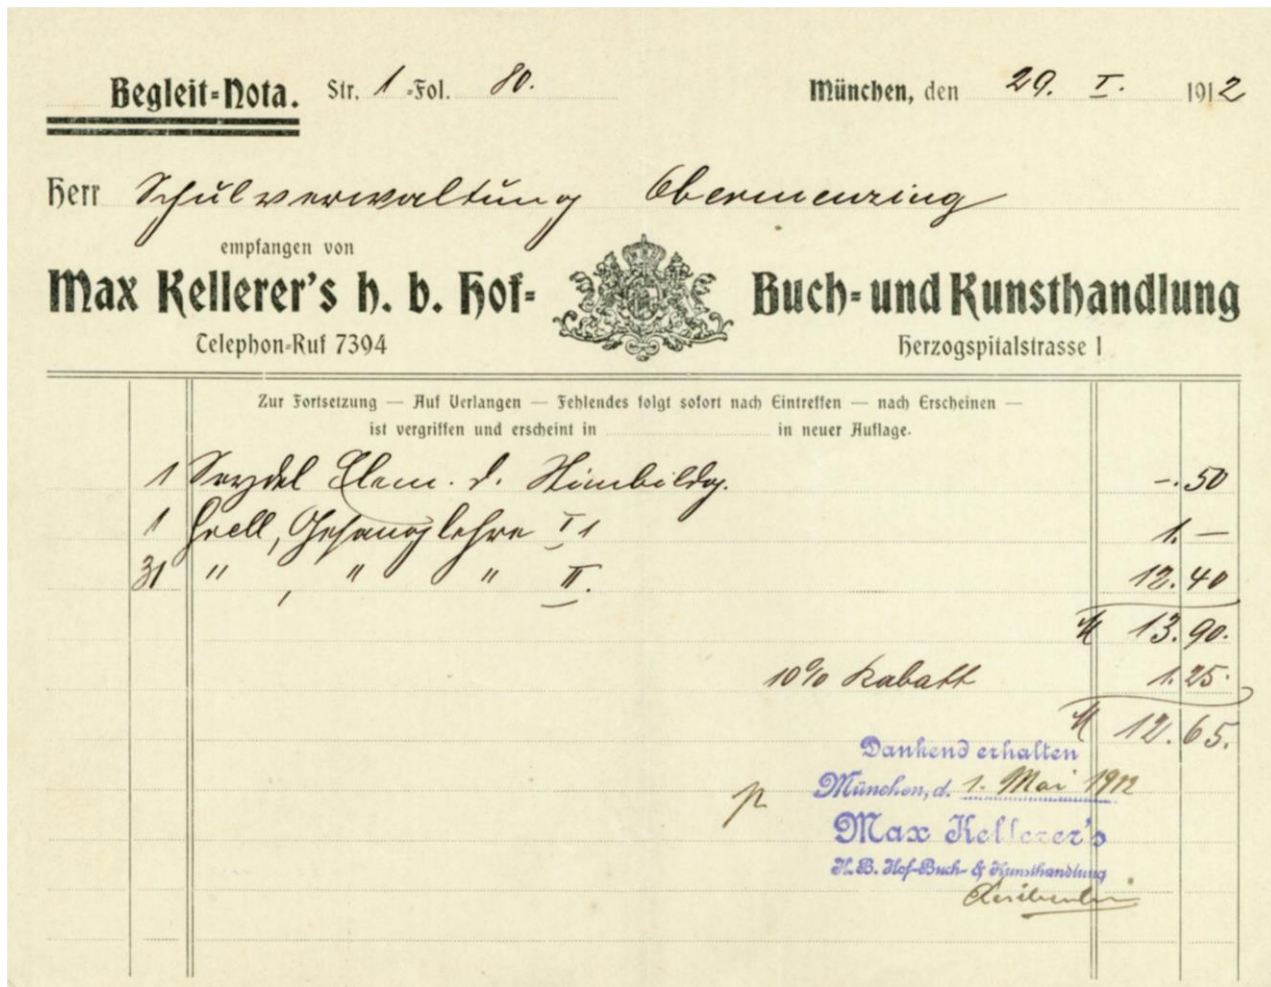 Begleit=Nota. Str. 1 =Fol. 80. München, den 29. I. 1912
Herr Schulverwaltung Obermenzing
empfangen von
Max Kellerer's h. b. Hof= Buch= und Kunsthandlung
Telephon=Ruf 7394 Herzogspitalstrasse 1
Zur Fortsetzung — Auf Verlangen — Fehlendes folgt sofort nach Eintreffen — nach Erscheinen —
ist vergriffen und erscheint in in neuer Auflage.
1 Seydel Elem. d. Stimbildg. -. 50
1 Grell, Gesanglehre I 1 1. —
31 " , " " II. 12. 40
M 13. 90.
10% Rabatt 1. 25.
M 12. 65.
Dankend erhalten
München, d. 1. Mai 1912
Max Kellerer's
H. B. Hof-Buch- & Kunsthandlung